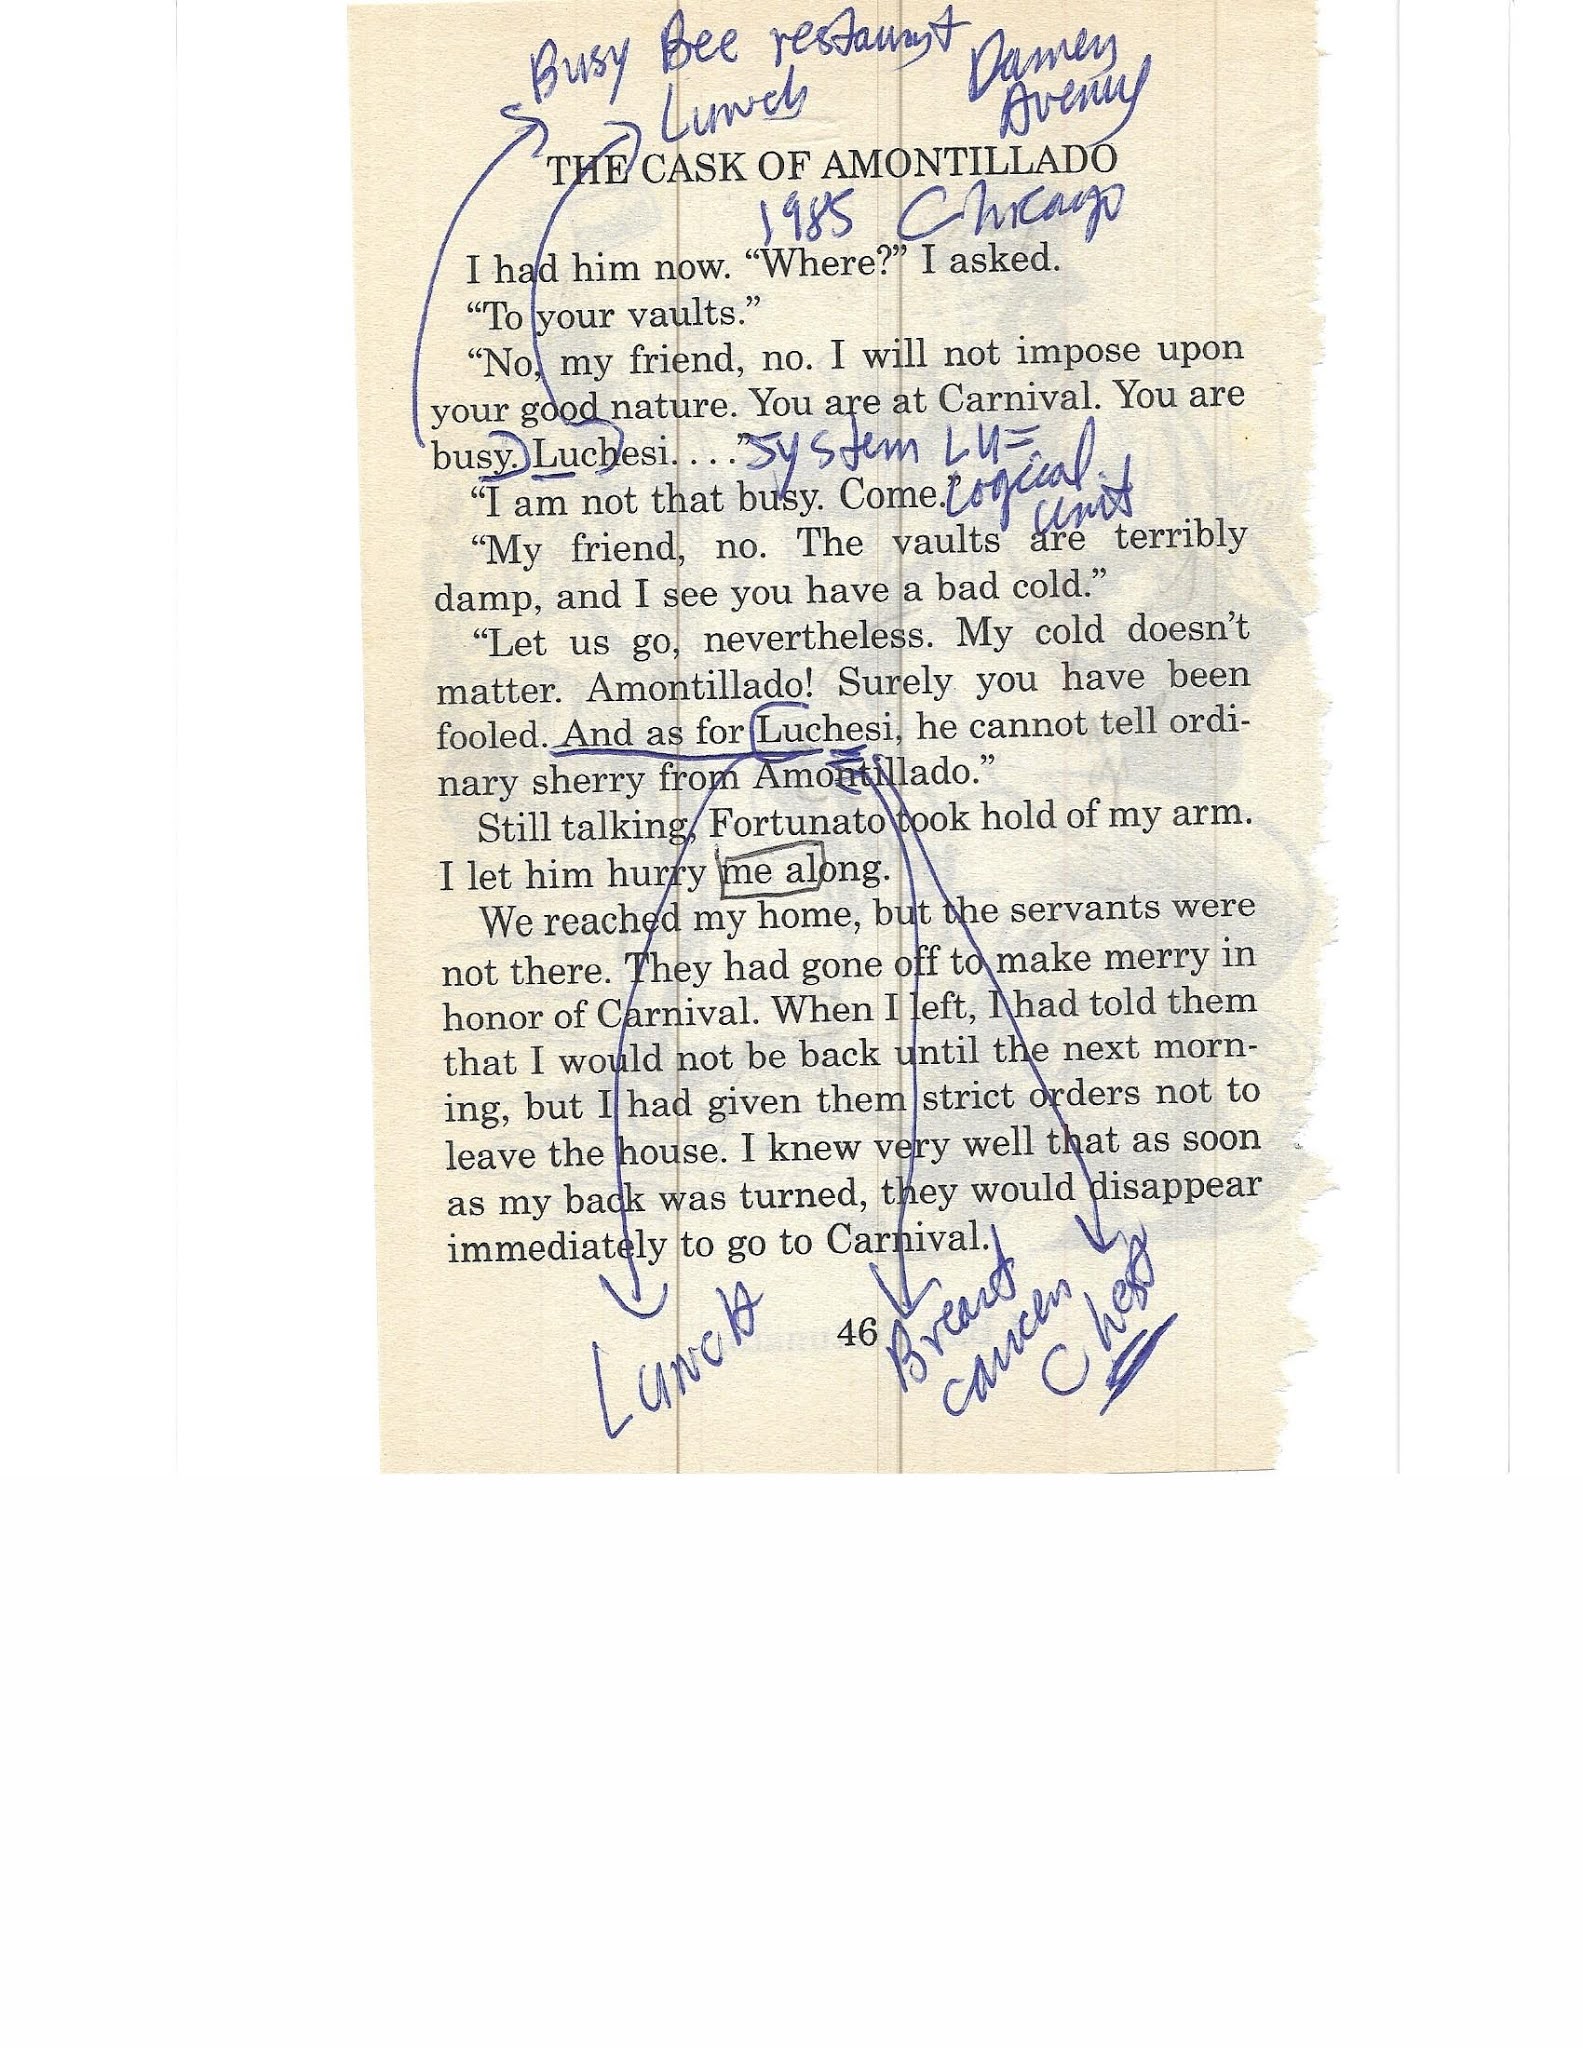 Busy Bee restaurant
Damen
Avenue
Lunch
THE CASK OF AMONTILLADO
1985 Chicago
I had him now. “Where?” I asked.
“To your vaults.”
“No, my friend, no. I will not impose upon
your good nature. You are at Carnival. You are
busy. Luchesi. . . .” System LU=
Logical
unit
“I am not that busy. Come.”
“My friend, no. The vaults are terribly
damp, and I see you have a bad cold.”
“Let us go, nevertheless. My cold doesn’t
matter. Amontillado! Surely you have been
fooled. And as for Luchesi, he cannot tell ordi-
nary sherry from Amontillado.”
Still talking, Fortunato took hold of my arm.
I let him hurry me along.
We reached my home, but the servants were
not there. They had gone off to make merry in
honor of Carnival. When I left, I had told them
that I would not be back until the next morn-
ing, but I had given them strict orders not to
leave the house. I knew very well that as soon
as my back was turned, they would disappear
immediately to go to Carnival.
Lunch
46
Breast
cancer
Chest